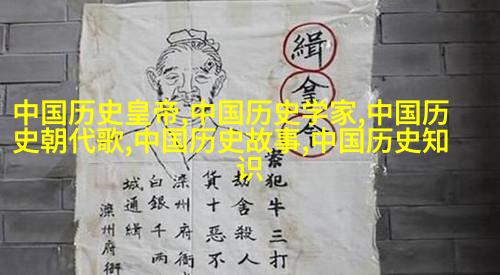 中国历史皇帝,中国历史学家,中国历
史朝代歌,中国历史故事,中国历史知
识
緝拿令
案犯牛三打
劫舍殺人
貨十惡不
滦州府衙
白銀千兩
城通緝
滦州府衙